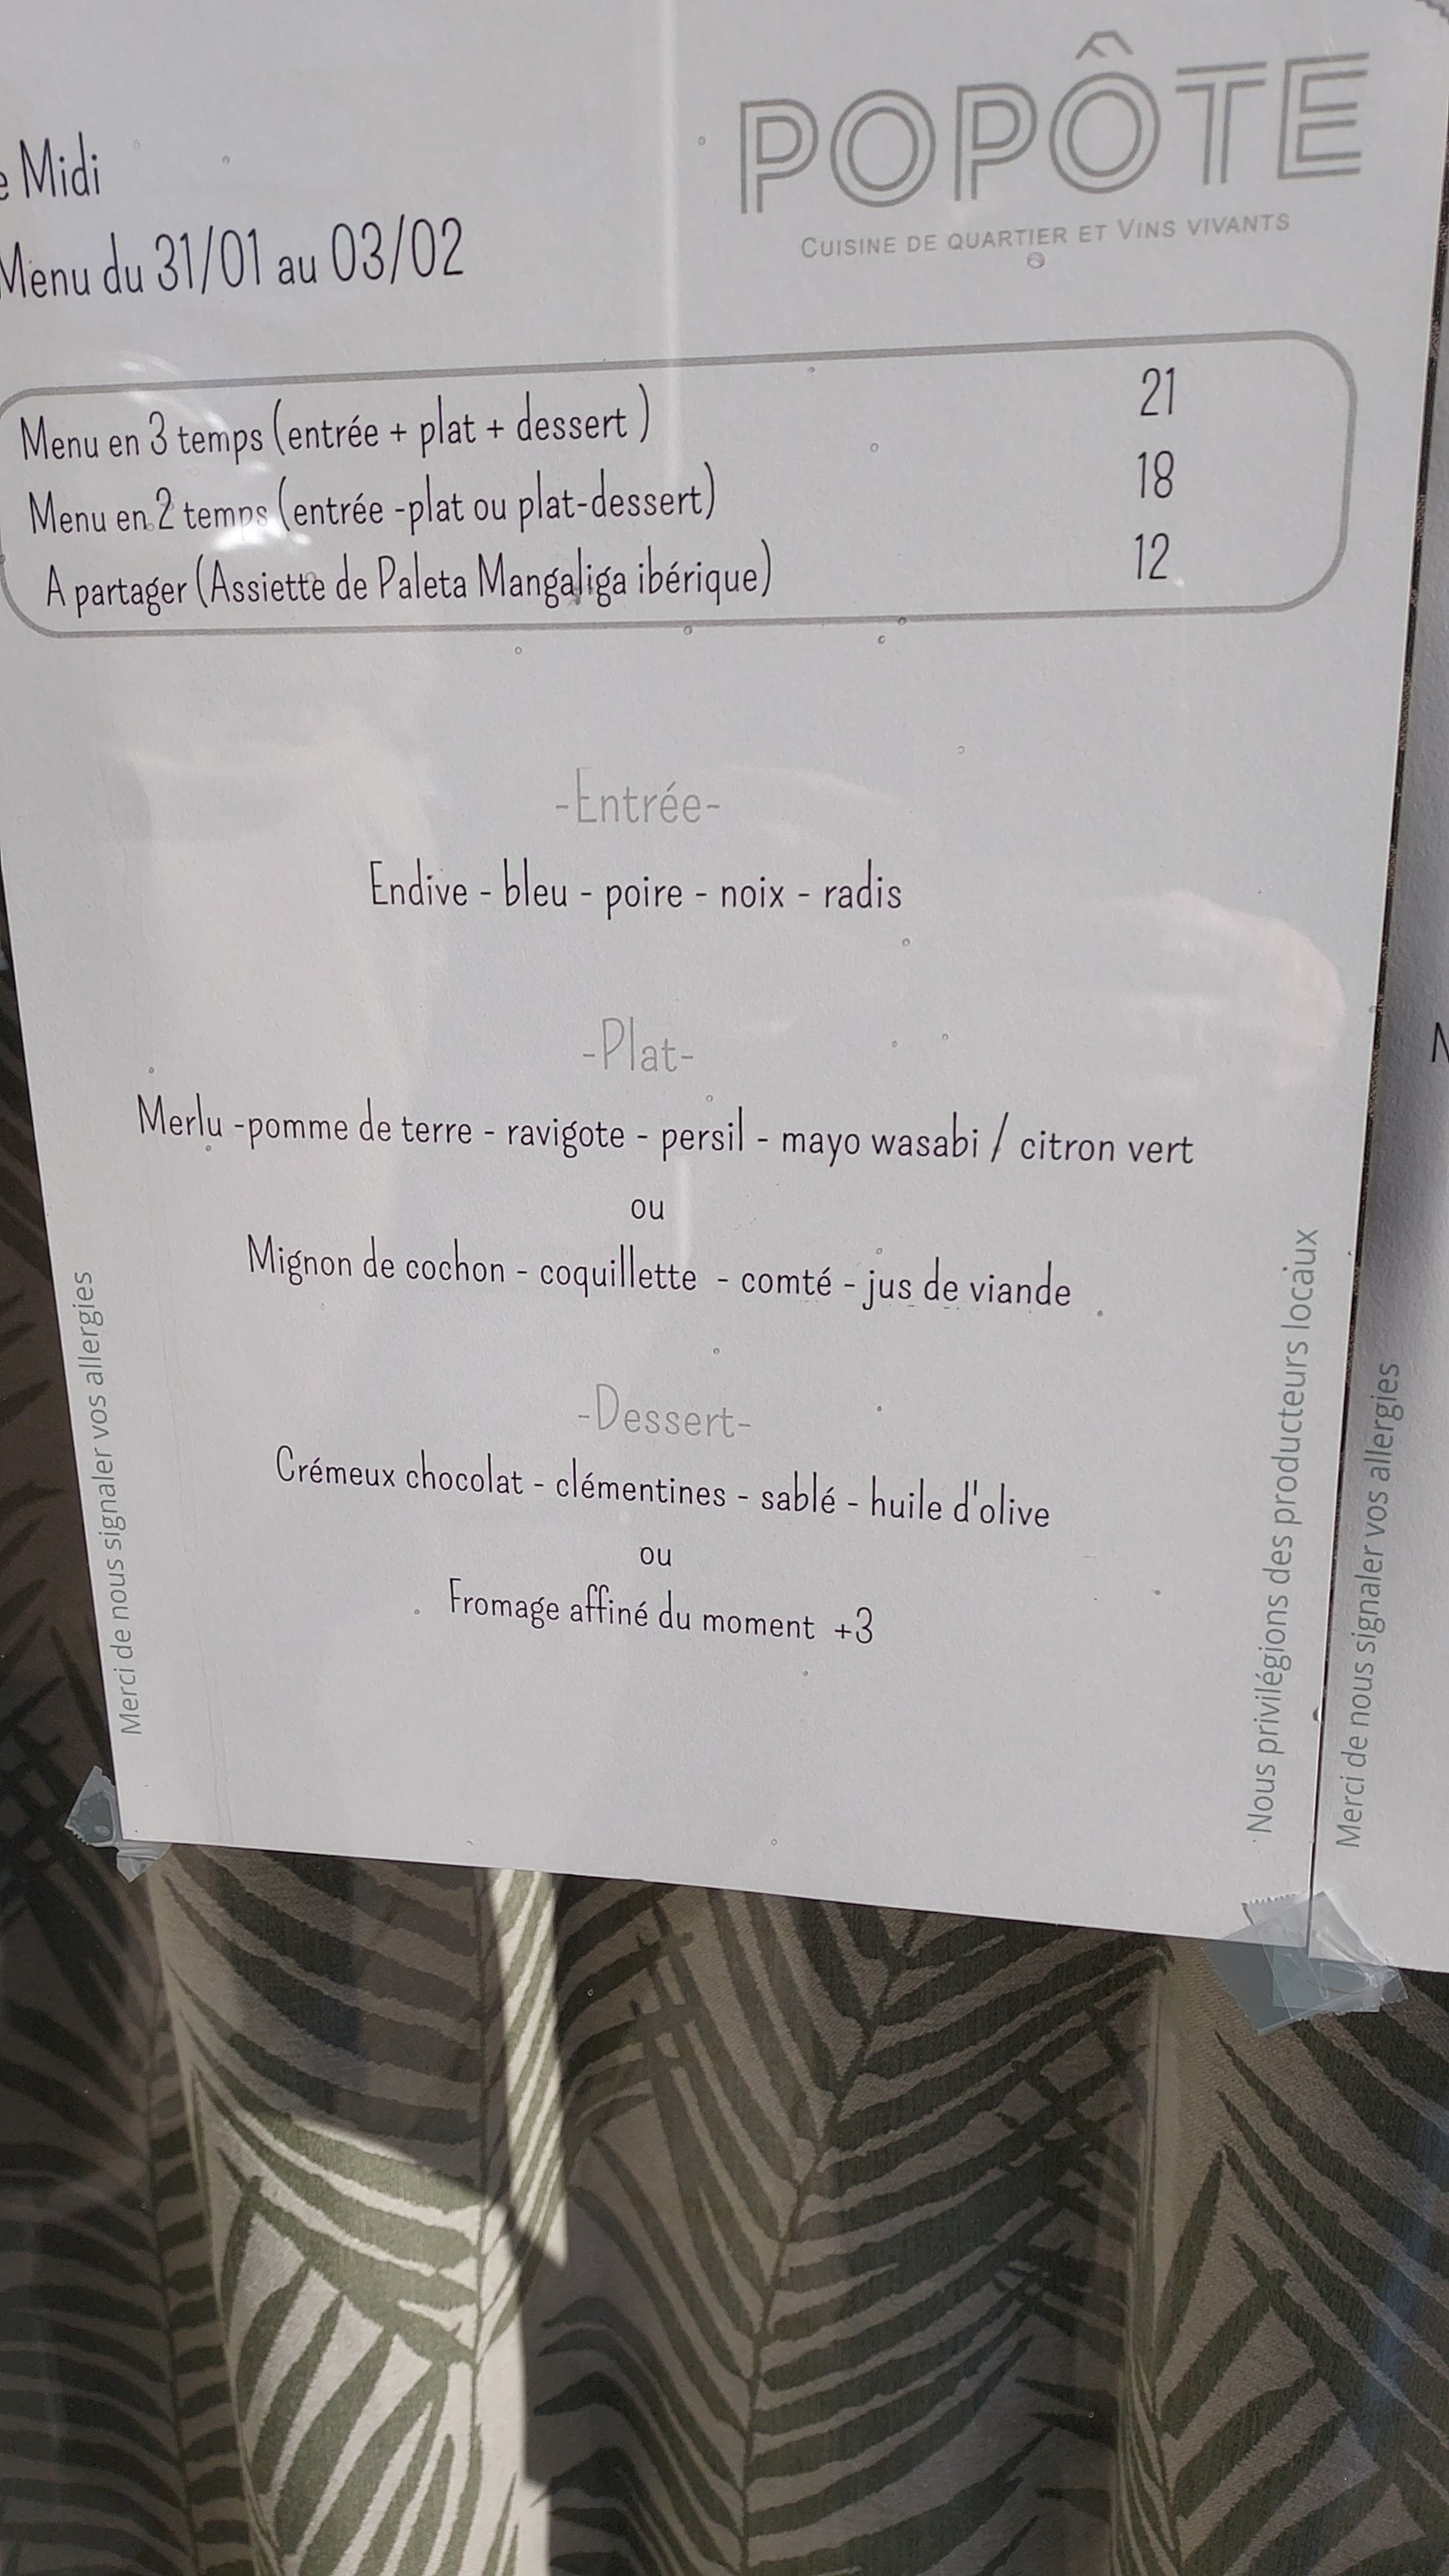 POPÔTE
CUISINE DE QUARTIER ET VINS VIVANTS
Midi
Menu du 31/01 au 03/02
Menu en 3 temps (entrée + plat + dessert ) 21
Menu en 2 temps (entrée -plat ou plat-dessert) 18
A partager (Assiette de Paleta Mangaliga ibérique) 12
-Entrée-
Endive - bleu - poire - noix - radis
-Plat-
Merlu -pomme de terre - ravigote - persil - mayo wasabi / citron vert
ou
Mignon de cochon - coquillette - comté - jus de viande
-Dessert-
Crémeux chocolat - clémentines - sablé - huile d'olive
ou
Fromage affiné du moment +3
Merci de nous signaler vos allergies
Nous privilégions des producteurs locaux
Merci de nous signaler vos allergies